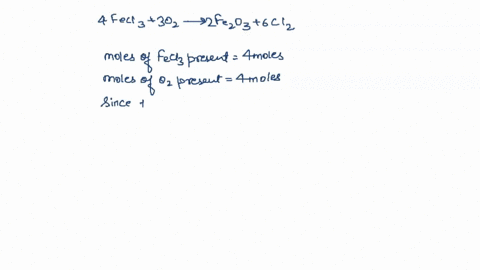 4 FeCl3 + 3O2 → 2Fe2O3 + 6Cl2
moles of FeCl3 present = 4 moles
moles of O2 present = 4 moles
Since t